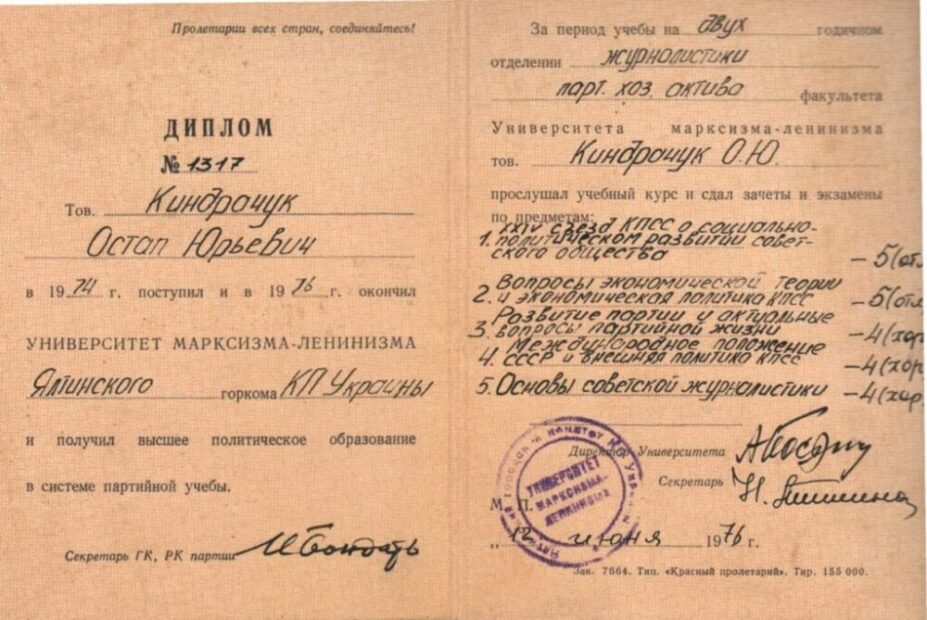 Пролетарии всех стран, соединяйтесь!
ДИПЛОМ
№ 1317
Тов. Киндрачук
Остап Юрьевич
в 1974 г. поступил и в 1976 г. окончил
УНИВЕРСИТЕТ МАРКСИЗМА-ЛЕНИНИЗМА
Ялтинского горкома КП Украины
и получил высшее политическое образование
в системе партийной учебы.
Секретарь ГК, РК партии
За период учебы на двух годичном
отделении журналистики
парт. хоз. актива факультета
Университета марксизма-ленинизма
тов. Киндрачук О.Ю.
прослушал учебный курс и сдал зачеты и экзамены
по предметам:
1. XXIV съезд КПСС о социально-
политическом развитии совет-
ского общества – 5 (отл
Вопросы экономической теории
2. и экономическая политика КПСС – 5 (отл
Развитие партии и актуальные
3. вопросы партийной жизни – 4 (хор
Международное положение
4. СССР и внешняя политика КПСС – 4 (хор
5. Основы советской журналистики – 4 (хор.
Директор Университета
Секретарь
М. П.
УНИВЕРСИТЕТ
МАРКСИЗМА-
ЛЕНИНИЗМА
„ 12 июня 1976 г.
Зак. 7664. Тип. «Красный пролетарий». Тир. 155 000.